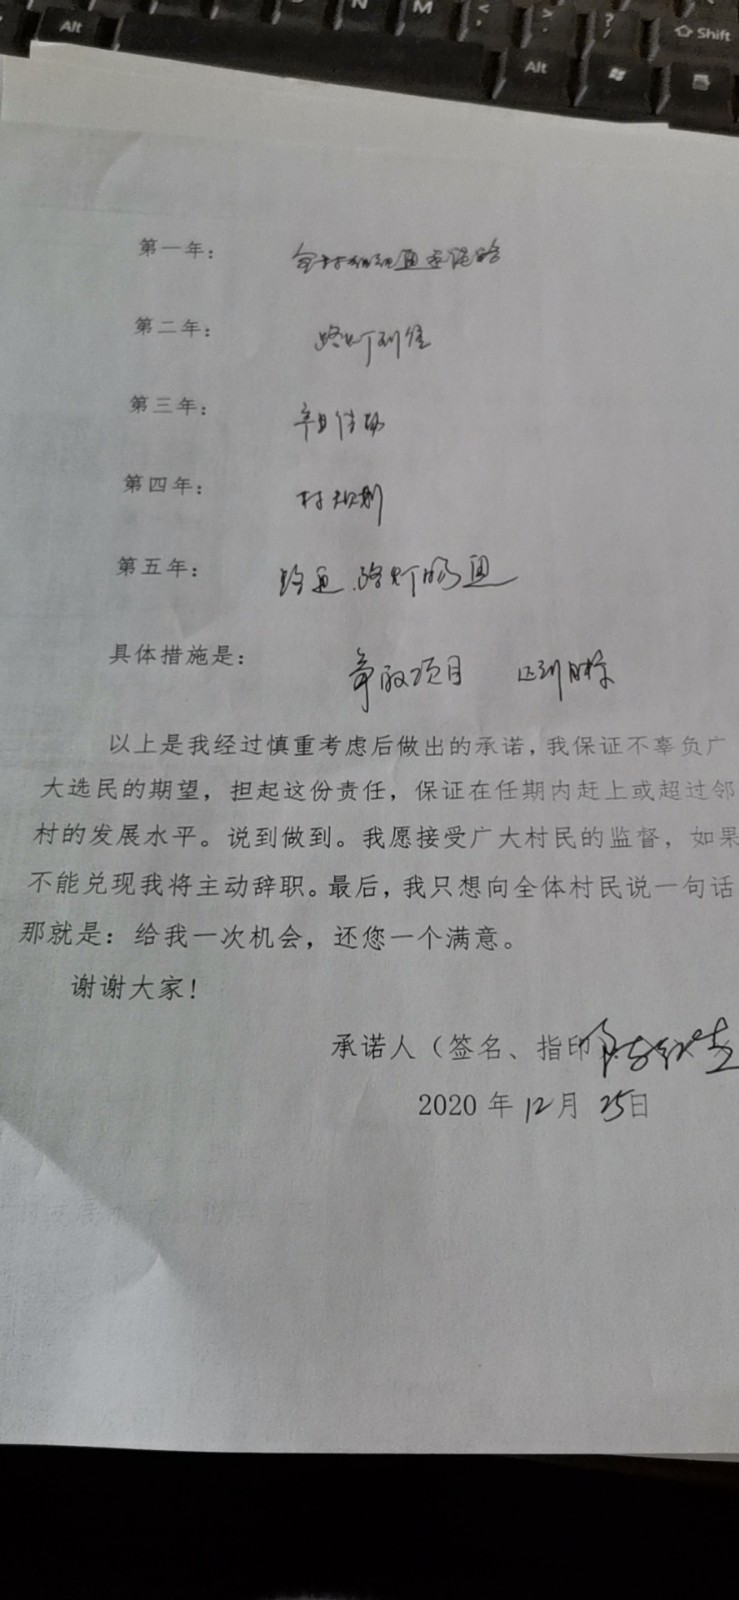 Alt
N
M
<
,
>
.
?
/
Shift
Alt
第一年：全村组组通水泥路
第二年：路灯到位
第三年：
第四年：村规划
第五年：路通、路灯
具体措施是：争取项目 达到目标
以上是我经过慎重考虑后做出的承诺，我保证不辜负广
大选民的期望，担起这份责任，保证在任期内赶上或超过邻
村的发展水平。说到做到。我愿接受广大村民的监督，如果
不能兑现我将主动辞职。最后，我只想向全体村民说一句话
那就是：给我一次机会，还您一个满意。
谢谢大家！
承诺人（签名、指印
2020 年 12 月 25 日